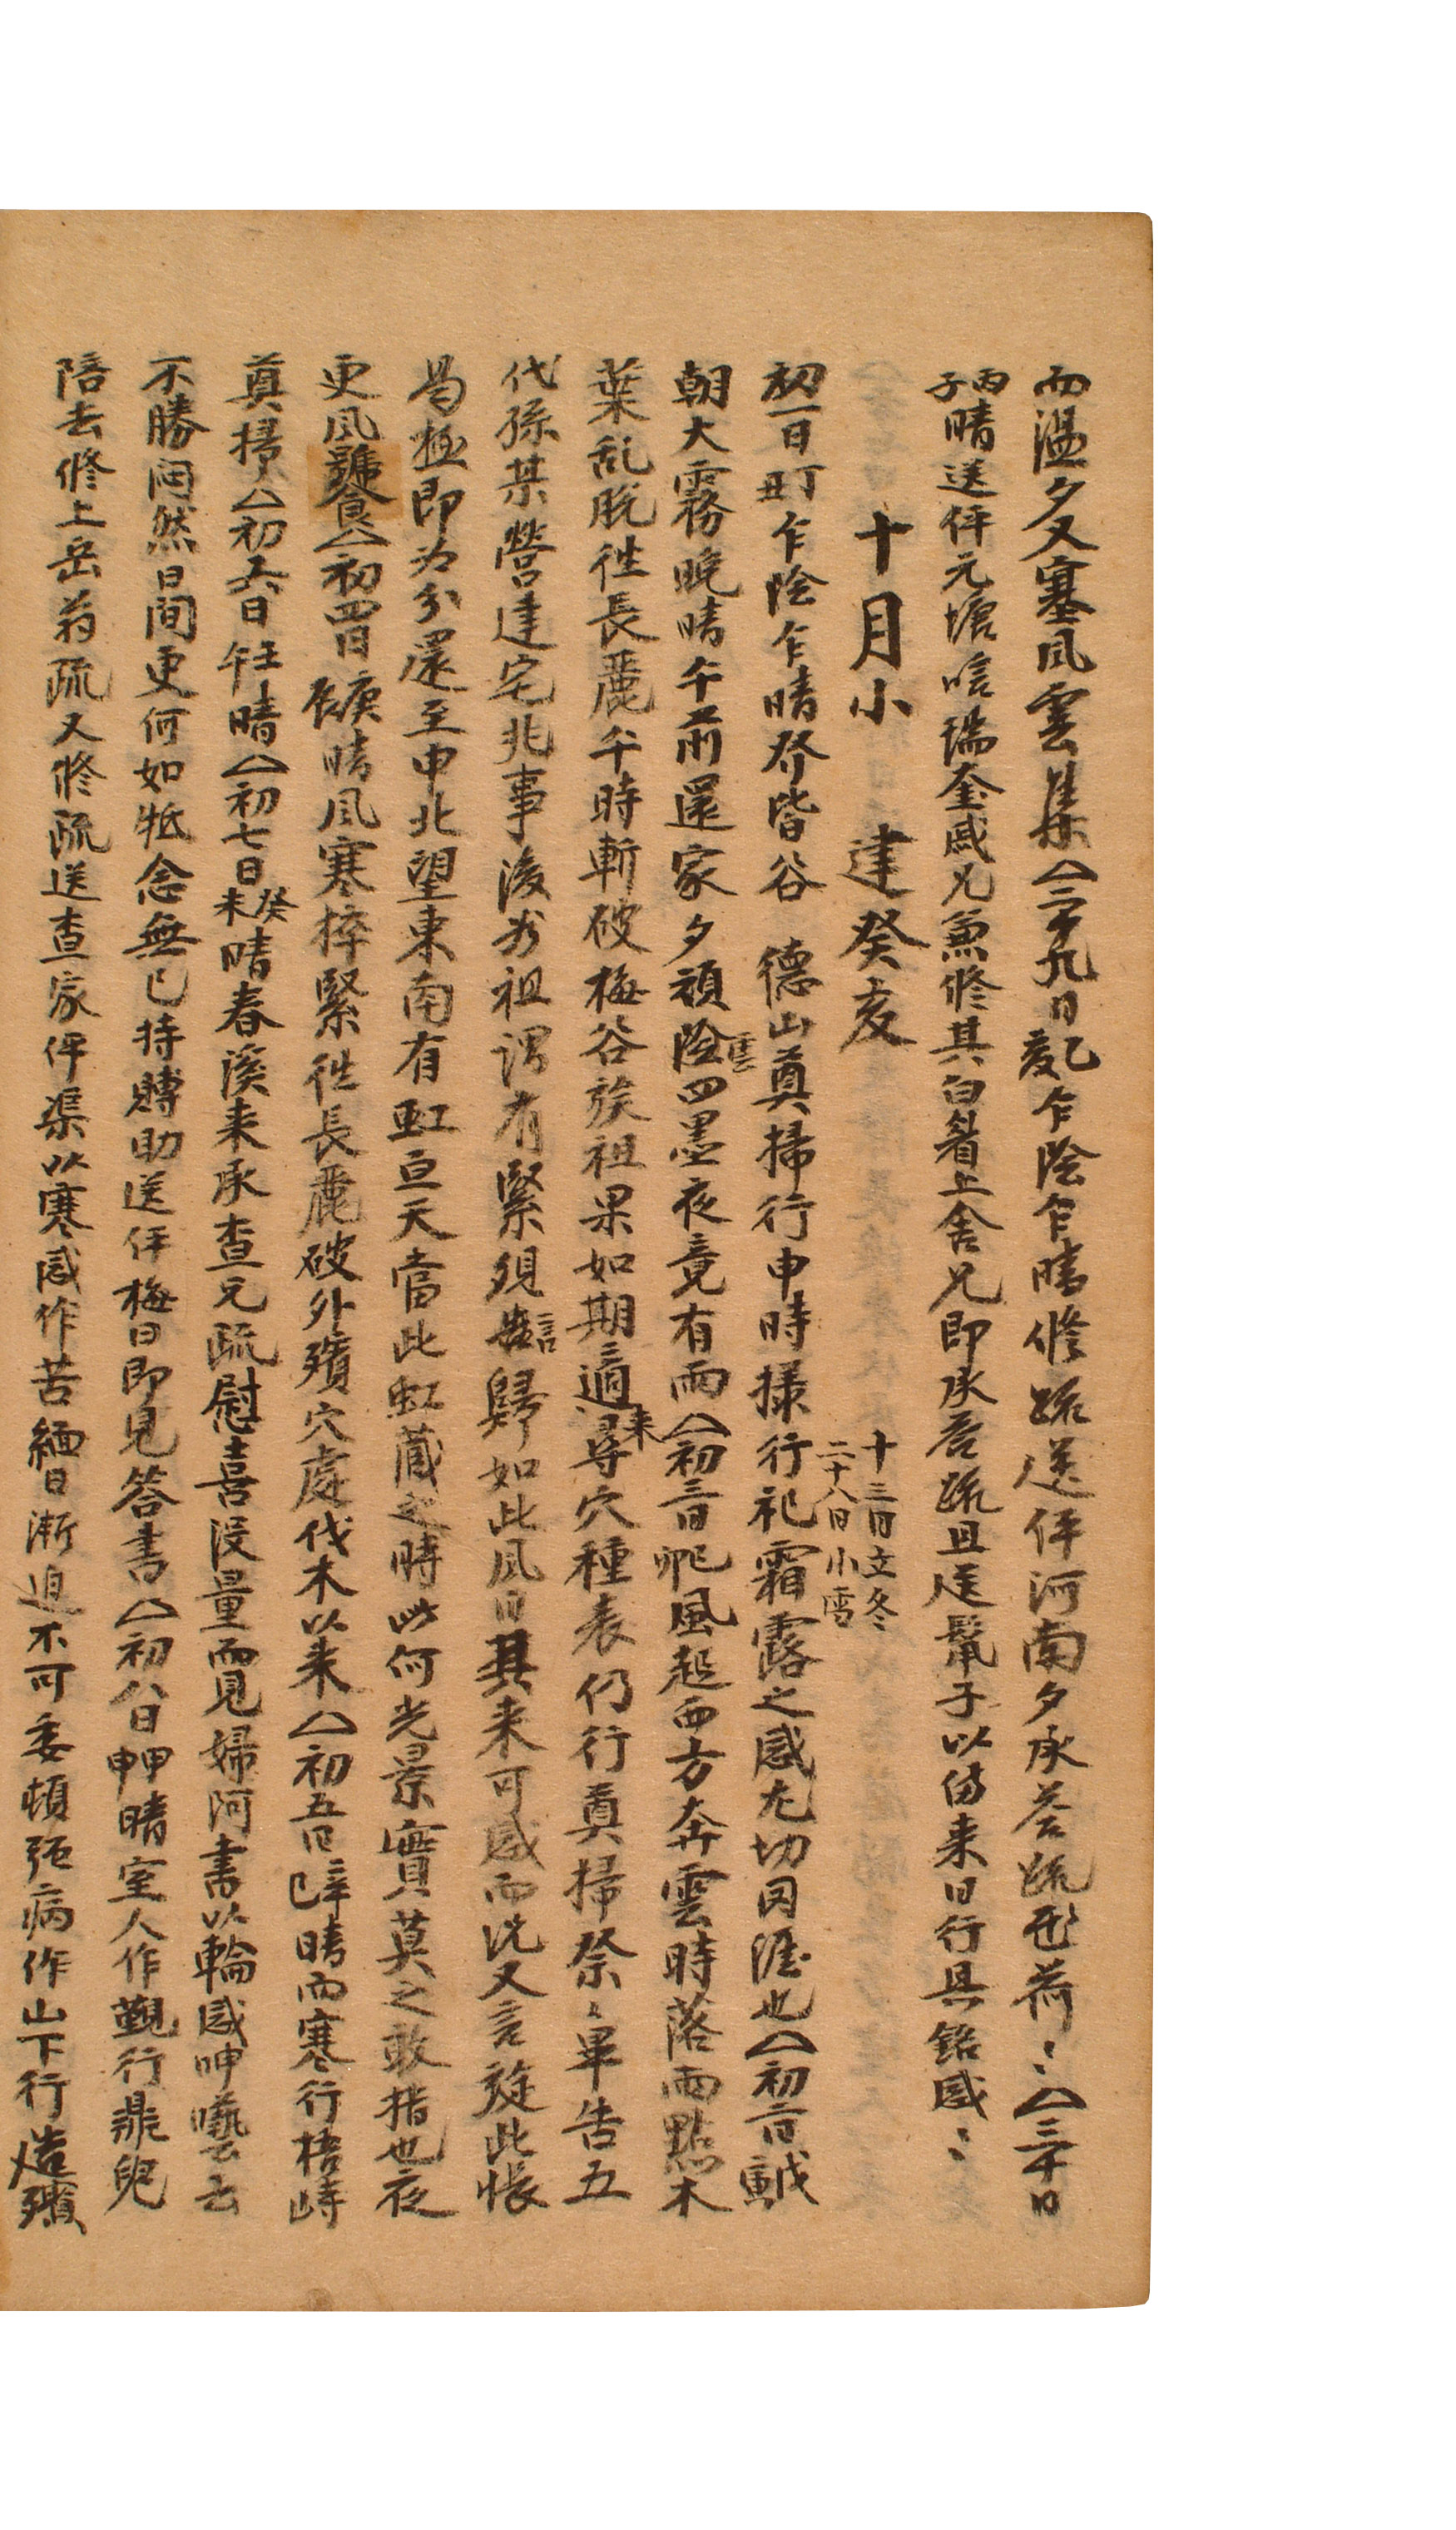 而溫夕又塞風雲集△二十九日乙亥乍陰乍晴修疏送伻河南夕承答疏慰荷〻△三十日
丙子晴送伻元塘唁瑞奎戚兄兼修其白眷上舍兄即承答疏且送鬣子以留来日行具銘感〻
十月小 建癸亥 十三日立冬 二十八日小雪
初一日丁丑乍陰乍晴發皆谷 德山奠掃行申時撮行祀霜露之感尤切罔涯也△初二日戊寅
朝大霧晚晴午前還家夕頑陰雲四墨夜竟有雨△初三日己卯風起西方奔雲時落雨點木
葉乱脫徃長麗午時斬破梅谷族祖果如期適来尋穴種表仍行奠掃祭〻畢告五
代孫某營建宅兆事後秀祖謂有緊現告言歸如此風日其来可感而况又言旋此悵
曷極即为分還至申北望東南有虹亘天當此虹藏之時此何光景實莫之敢指也夜
更風號饕△初四日庚辰晴風寒猝緊徃長麗破外殯穴處伐木以来△初五日辛巳晴而寒行梧峙
奠掃△初六日壬午晴△初七日癸未晴春溪来承查兄疏慰喜沒量而見婦阿書以輪感呻囈云
不勝悶然日間更何如牴念無已持賻助送伻梅日即見答書△初八日甲申晴室人作覲行鼎兒
陪去修上岳翁疏又修疏送查家伻渠以寒感作苦緬日漸迫不可委頓强病作山下行造殯